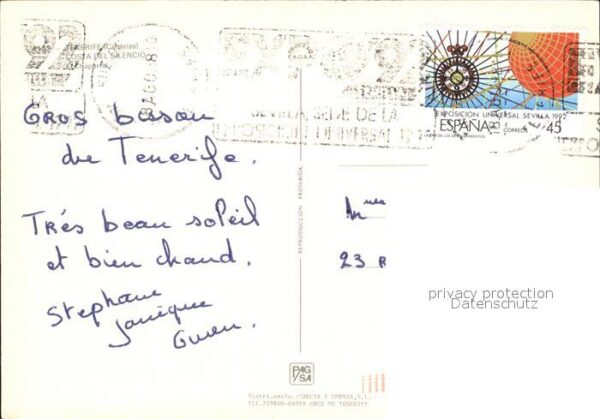 TENERIFE (Canarias)
COSTA DEL SILENCIO
Gros bisou
de Tenerife.
Très beau soleil
et bien chaud.
Stephane
Janique
Gwen.
REPRODUCCION PROHIBIDA
EXPOSICION UNIVERSAL SEVILLA 1992
ESPAÑA
CORREOS
45
SEVILLA, SEDE DE LA
EXPOSICION UNIVERSAL
Mme
23 R
privacy protection
Datenschutz
PAG
SA
Distri.exclu.: GARCIA Y CORREA, S.L.
TLF. 229840-SANTA CRUZ DE TENERIFE